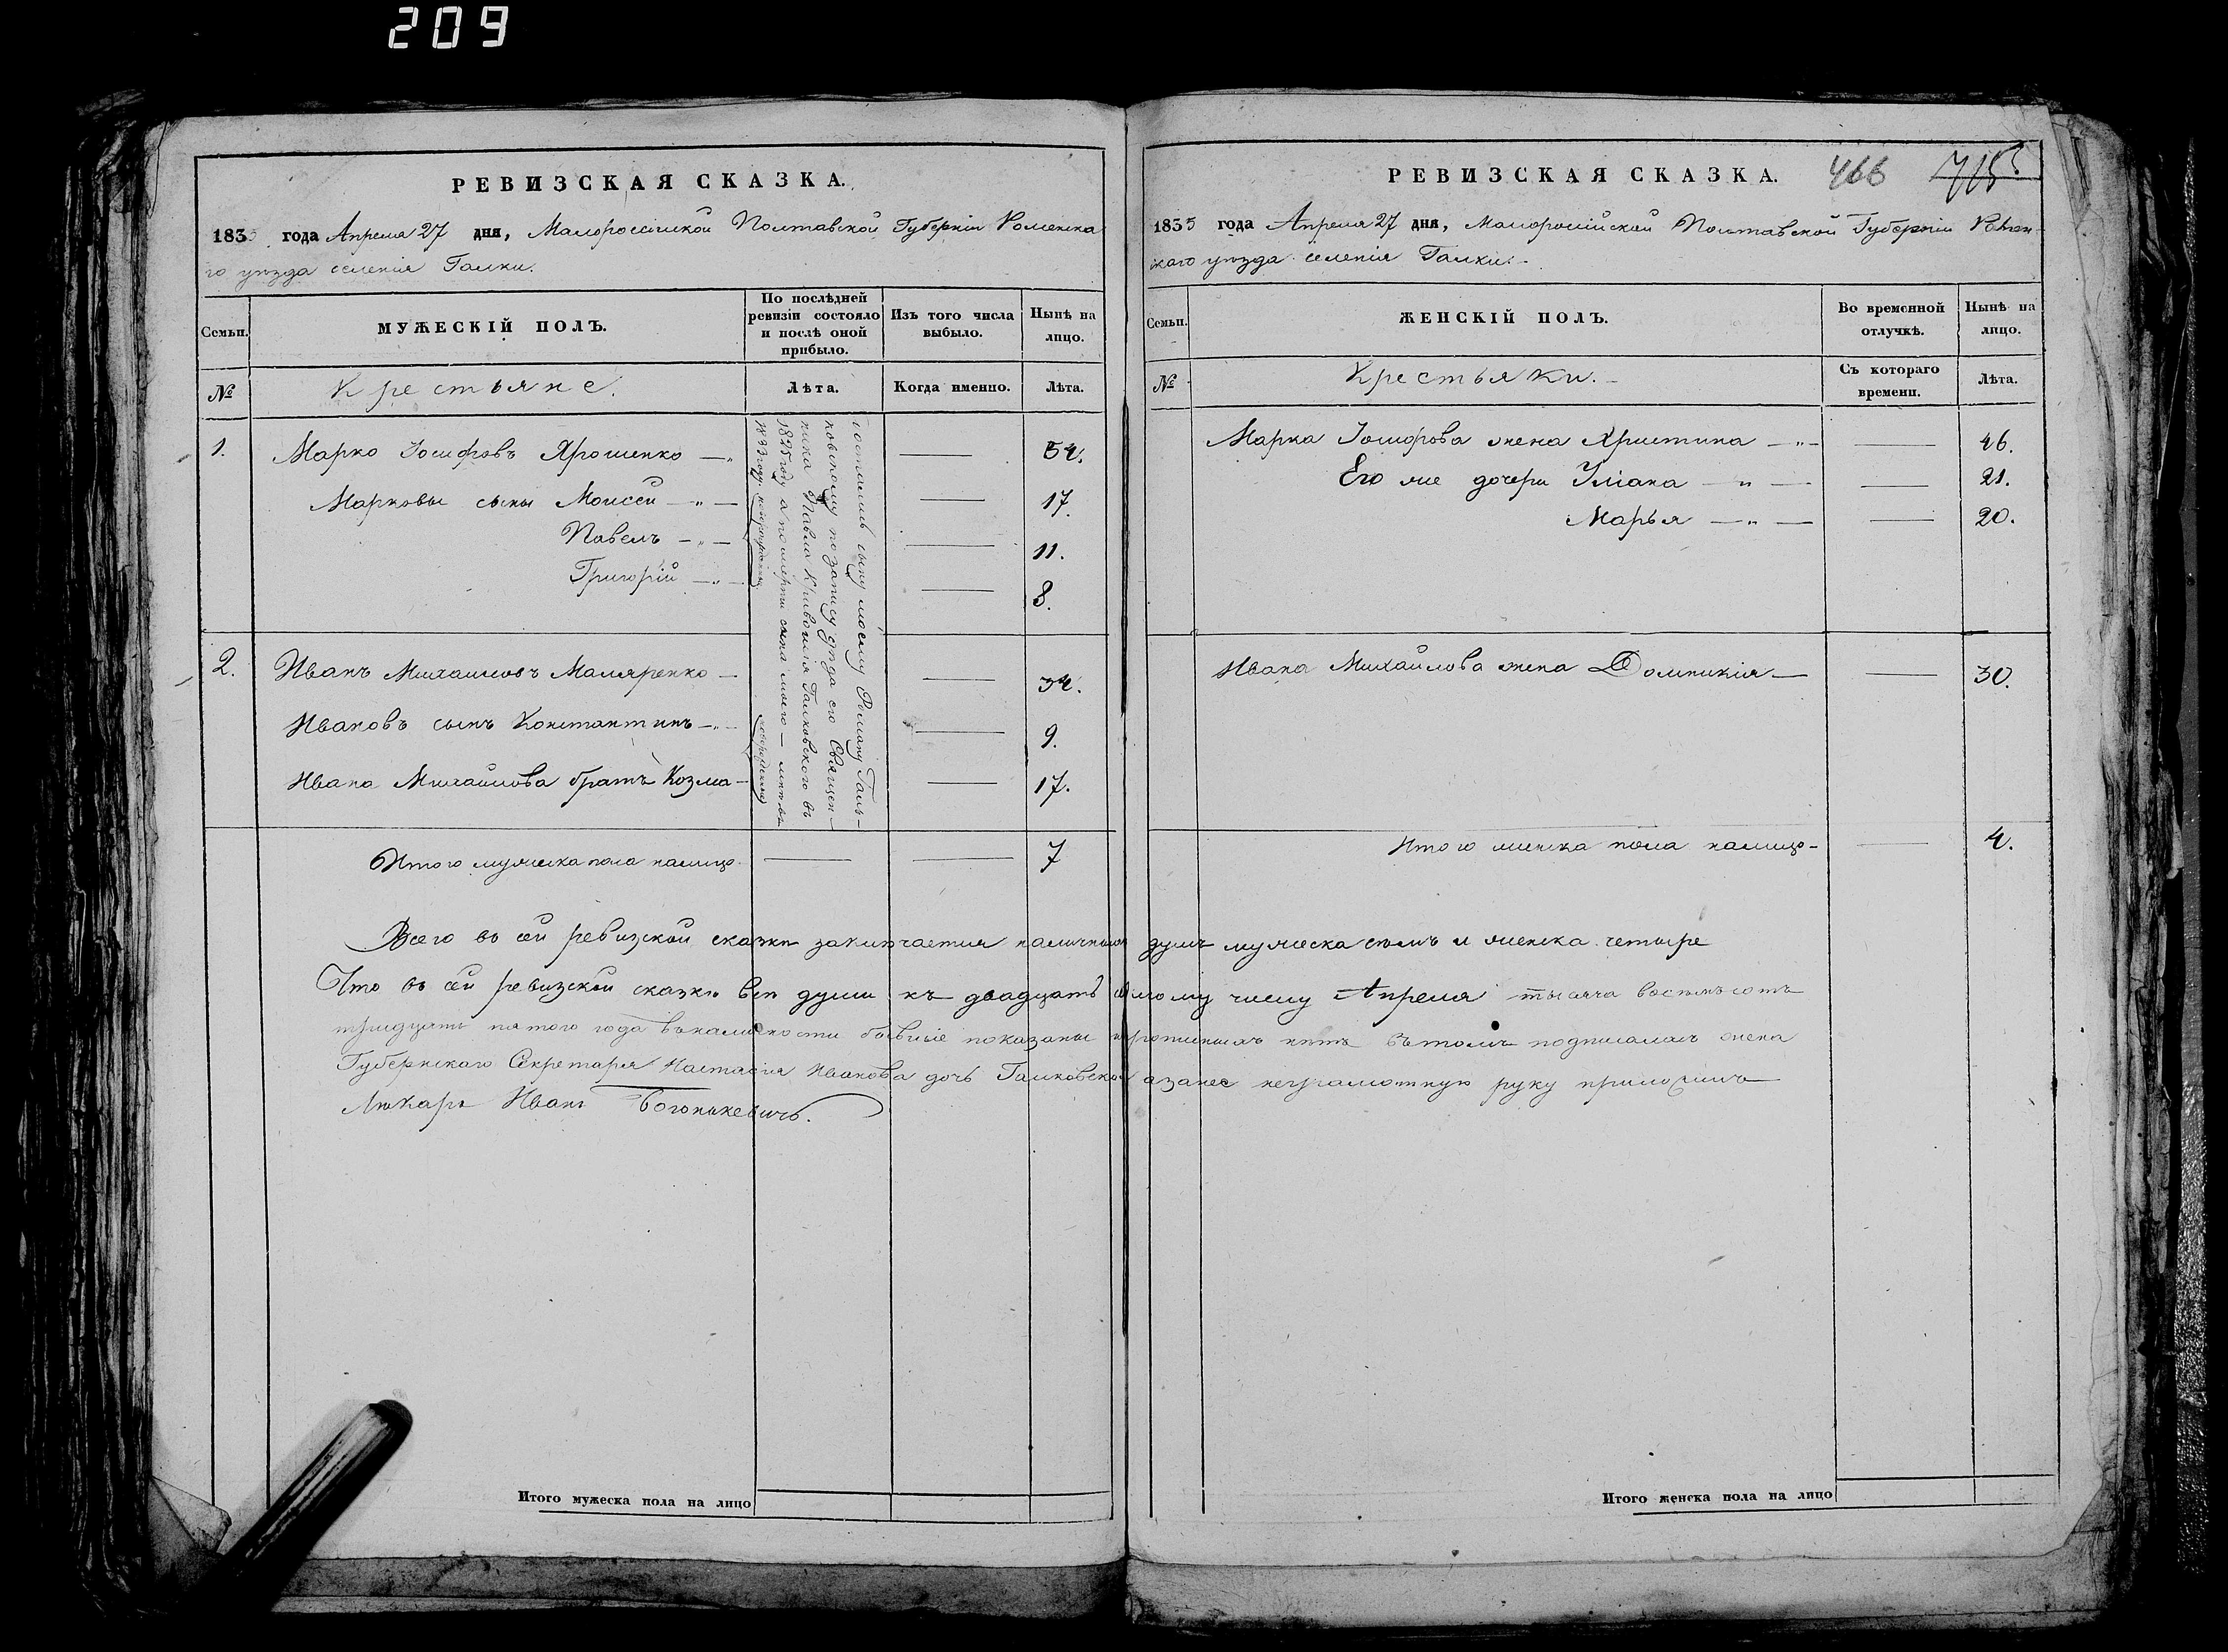 209
РЕВИЗСКАЯ СКАЗКА.
1835 года Апреля 27 дня, Малороссійской Полтавской Губерніи Роменска
го уѣзда селенія Галки.
Семьи.
МУЖЕСКІЙ ПОЛЪ.
По послѣдней
ревизіи состояло
и послѣ оной
прибыло.
Изъ того числа
выбыло.
Нынѣ на
лицо.
№
Крестьяне.
Лѣта.
Когда именно.
Лѣта.
1. Марко Іосифовъ Ярошенко 54.
Марковы сыны Моисей 17.
Павелъ 11.
Григорій 8.
2. Иванъ Михаиловъ Маляренко 34.
Ивановъ сынъ Константинъ 9.
Ивана Михайлова братъ Козма 17.
достались сыну моему Роману Галь-
ковскому по запису дѣда его Священ-
ника Павла Галковского въ
1825 году а по смерти сына моего — мнѣ въ
1833 году
новорожденны
Итого мужеска пола налицо 7
РЕВИЗСКАЯ СКАЗКА.
466
715
1835 года Апреля 27 дня, Малоросийской Полтавской Губерніи Ромен-
скаго уѣзда селенія Галки.
Семьи.
ЖЕНСКІЙ ПОЛЪ.
Во временной
отлучкѣ.
Нынѣ на
лицо.
№
Крестьяки.
Съ котораго
времени.
Лѣта.
Марка Іосифова жена Христина 46.
Его же дочери Уліана 21.
Марья 20.
Ивана Михайлова жена Домникія 30.
Итого женска пола налицо 4.
Всего въ сей ревизской сказкѣ заключается наличныхъ душъ мужеска семь и женска четыре
Что въ сей ревизской сказкѣ всѣ души къ двадцать седмому числу Апреля тысяча восемьсотъ
тридцать пятого года въ наличности бывшіе показаны и прописныхъ нѣтъ въ томъ подписалась жена
Губернскаго Секретаря Настасія Иванова дочь Галковская а за нее неграмотную руку приложилъ
Лѣкарь Иванъ
Итого мужеска пола на лицо
Итого женска пола на лицо